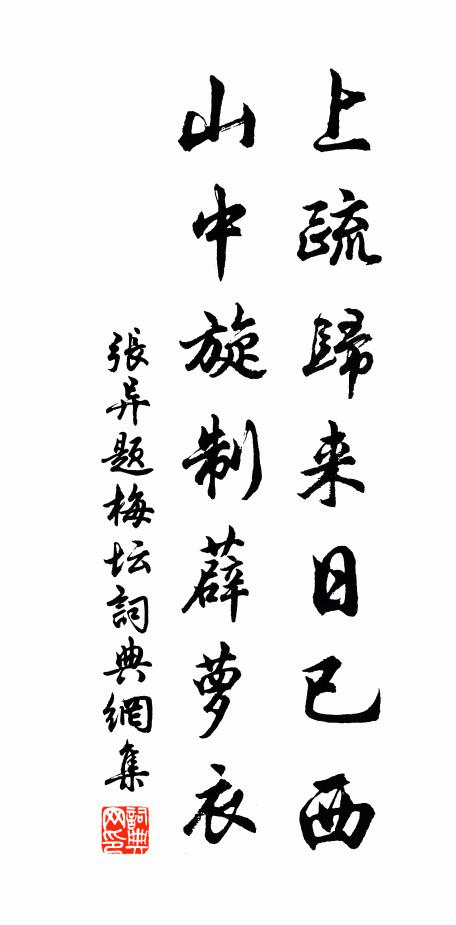 上疏歸来日已西
山中旋制薜萝衣
張昇题梅坛詞典網集
詞典網印